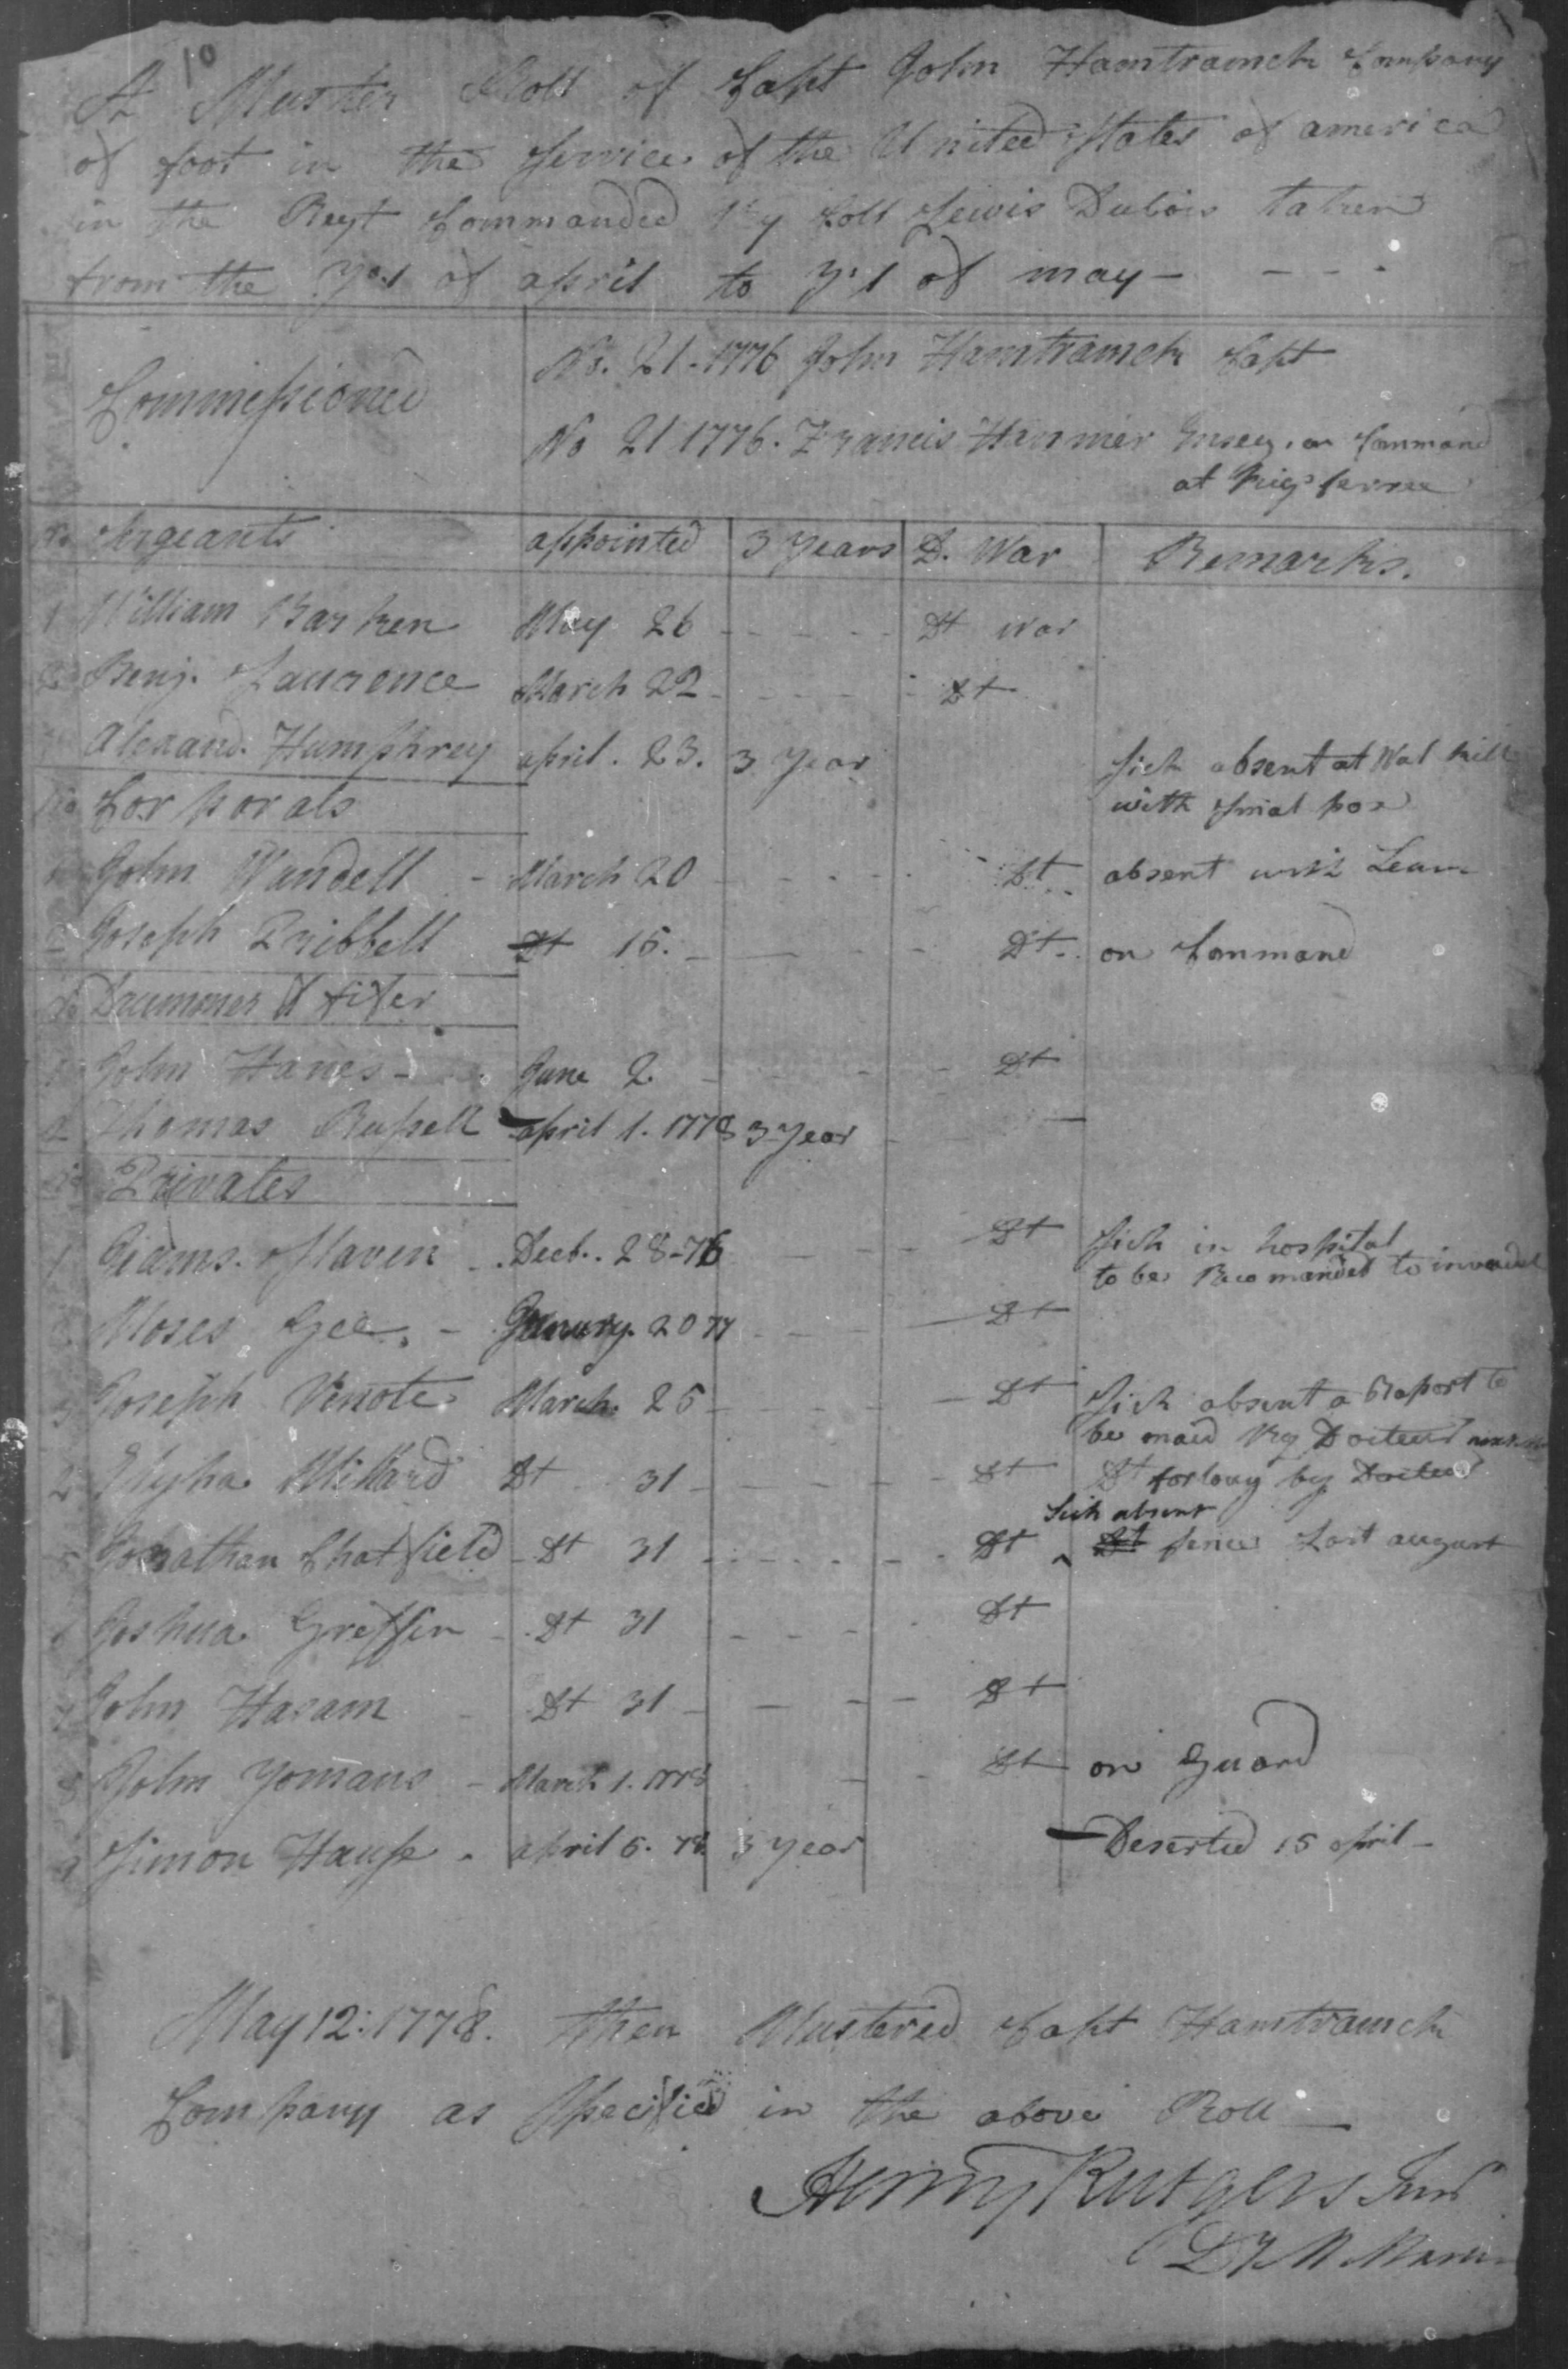 10
A Muster Roll of Capt John Hamtramck Company
of foot in the Service of the United States of america
in the Regt Commanded By Coll Lewis Dubois taken
from the Ye 1 of april to Ye 1 of may
Commissioned
No. 21 - 1776 John Hamtramck Capt
No 21 1776. Francis Hanmer Enseg. on Command
at
No Sergeants appointed 3 Years D. War Remarks.
1 William Barken May 26 Dt War
2 Benj. Laurence March 22 Dt
Alexand. Humphrey april. 23. 3 Year Sick absent at Wal kill
with Smal pox
No Corporals
John Wandell March 20 Dt absent with Leave
2 Joseph Pribbell Dt 15. Dt on Command
No Drummer & fifer
John Hanes June 2 Dt
2 Thomas Russell april 1. 1778 3 Year
No Privates
1 Slaven Decb. 28-76 Dt Sick in hospital
to be Recomanded to
Moses Gee. Janury. 20 77 Dt
3 Joseph Vinote March 25 Dt Sick absent a Raport to
be maid By Docteur
Elijha Millard Dt 31 Dt Dt forloug by Docteur
Sick absent
5 Jonathan Chatfield Dt 31 Dt ^ Dt sence Last august
6 Joshua Greffin Dt 31 Dt
7 John Hasam Dt 31 Dt
8 John Yomans March 1. 1778 Dt on Guard
9 Simon Hause april 6. 78 3 year Deserted 15 april
May 12: 1778. then Mustered Capt Hamtramck
Company as Specified in the above Roll
Henry Rutgers Junr
D Y M Mas